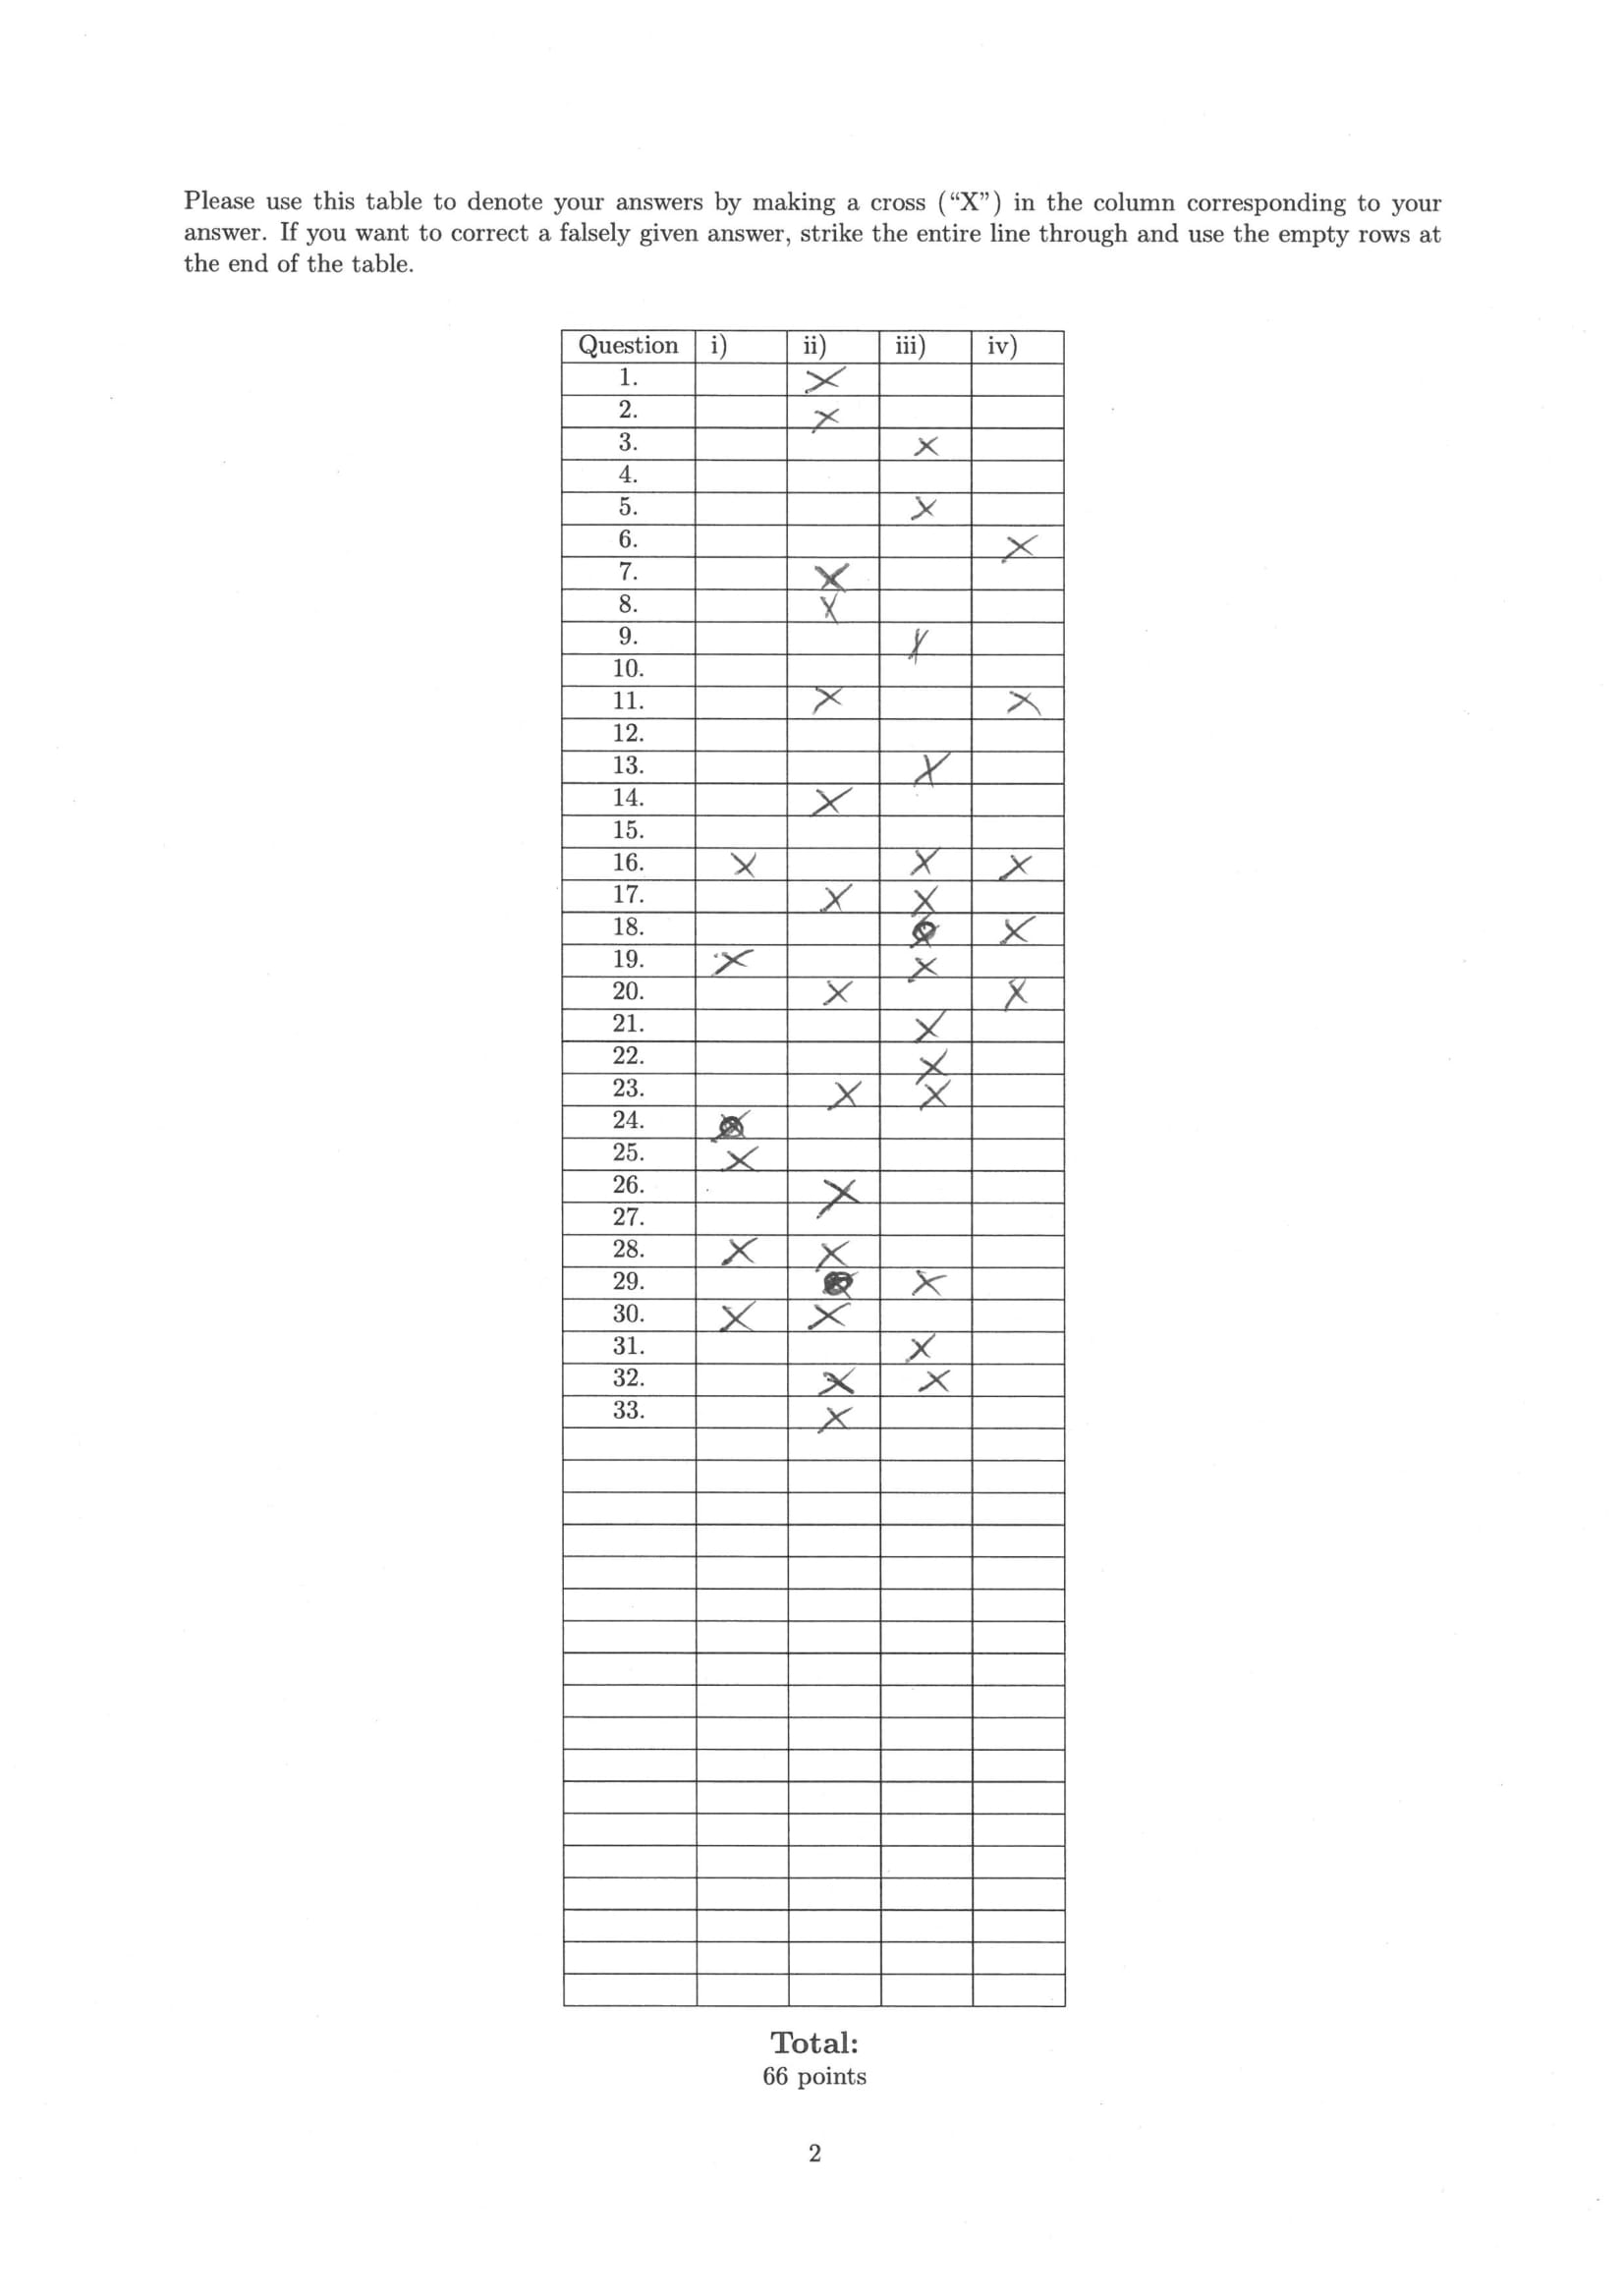 Please use this table to denote your answers by making a cross (“X”) in the column corresponding to your
answer. If you want to correct a falsely given answer, strike the entire line through and use the empty rows at
the end of the table.
Question i) ii) iii) iv)
1. X
2. X
3. X
4.
5. X
6. X
7. X
8. X
9. X
10.
11. X X
12.
13. X
14. X
15.
16. X X X
17. X X
18. X
19. X X
20. X X
21. X
22. X
23. X X
24.
25. X
26. X
27.
28. X X
29. X
30. X X
31. X
32. X X
33. X
Total:
66 points
2